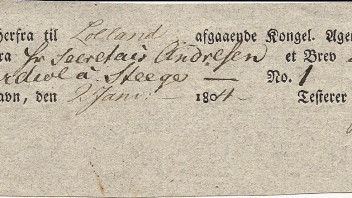 herfra til Lolland afgaaende Kongel. Age
fra Hr Secretair Andresen et Brev
à Steege — No. 1
avn, den 2 Jan: 184 Testerer